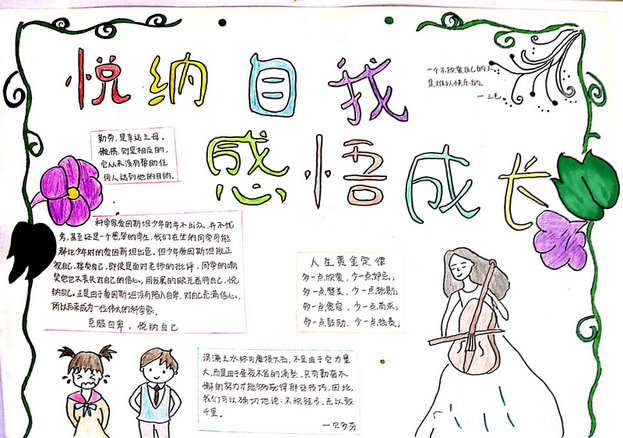 悦纳自我
感悟成长
一个不欣赏自己的人
是难以快乐的。
—三毛
勤劳,是幸运之母。
懒惰,则是相反的,
它从来没有帮助任
何人达到他的目的。
科学家爱因斯坦少年时并不出众,并不优
秀,甚至还是一个愚笨的学生。我们在坐的同学可能
都比少年时的爱因斯坦出色。但少年爱因斯坦敢正
视自己,接受自己,即使是面对老师的批评、同学的嘲
笑,他也不丧失对自己的信心,用发展的眼光看待自己,悦
纳自己。正是由于爱因斯坦没有陷入自卑,对自己充满信心,
所以后来成为一位伟大的科学家。
克服自卑,悦纳自己
人生黄金定律
多一点欣赏,少一点
多一点赞美,少一点
多一点宽容,少一点
多一点鼓励,少一点
涓滴之水终可磨损大石,不是由于它力量
大,而是由于昼夜不舍的滴坠。只有勤奋不
懈的努力才能够获得那些技巧,因此,
我们可以确切地说:不积跬步,无以致
千里。
—贝多芬